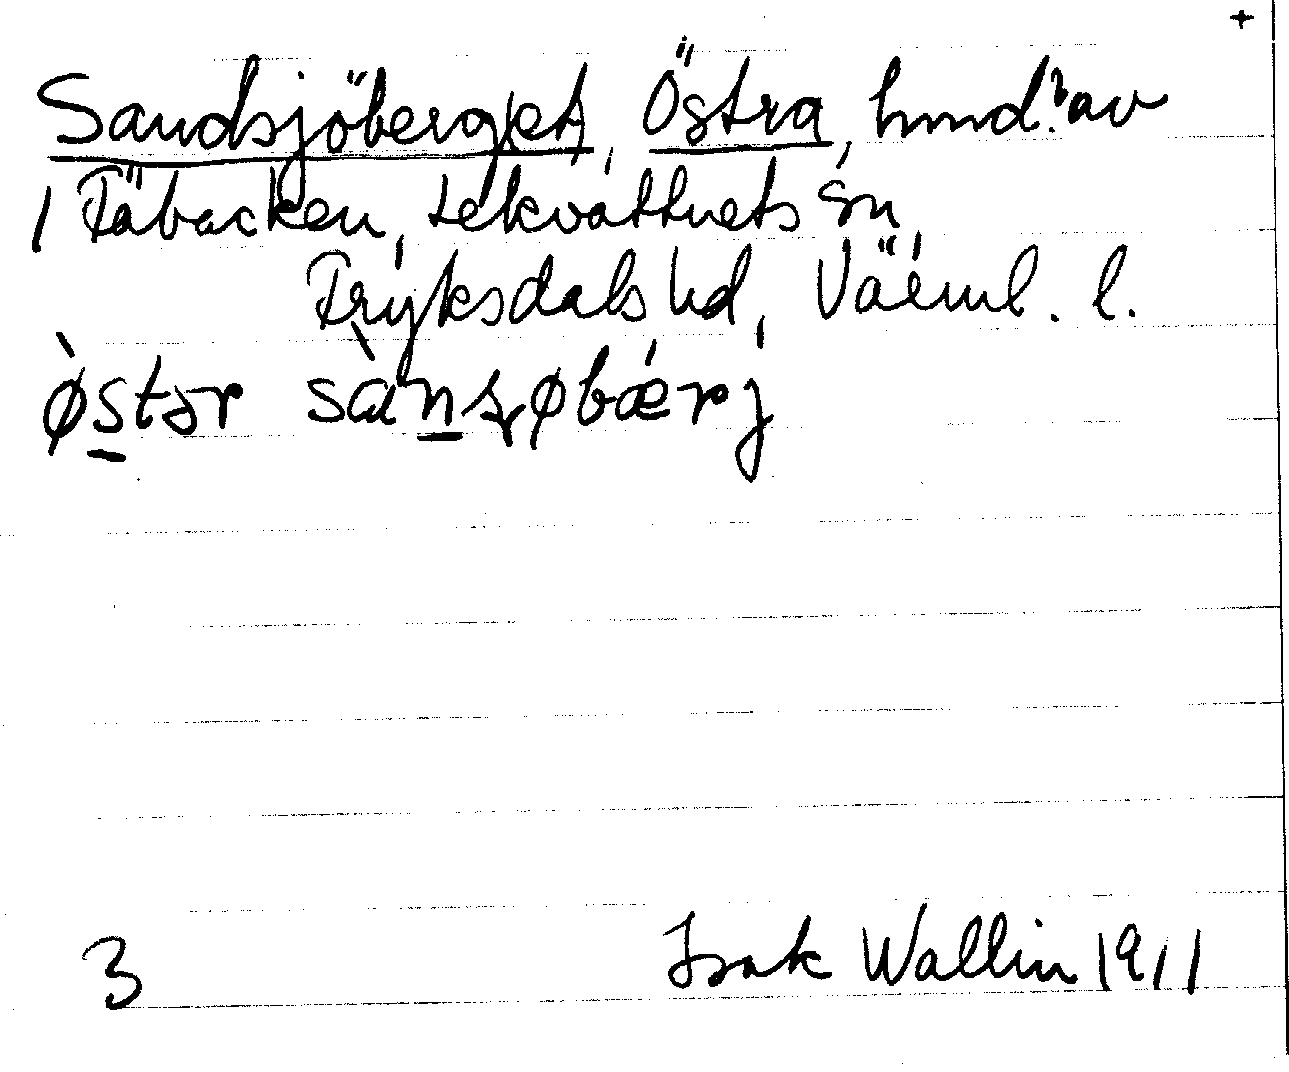 +
Sandsjöberg(et), Östra, hmnd. av
1 Fäbacken, Lekvattnets sn,
Fryksdals hd, Värml. l.
ø̀stər sànsøbærj
3 Isak Wallin 1911